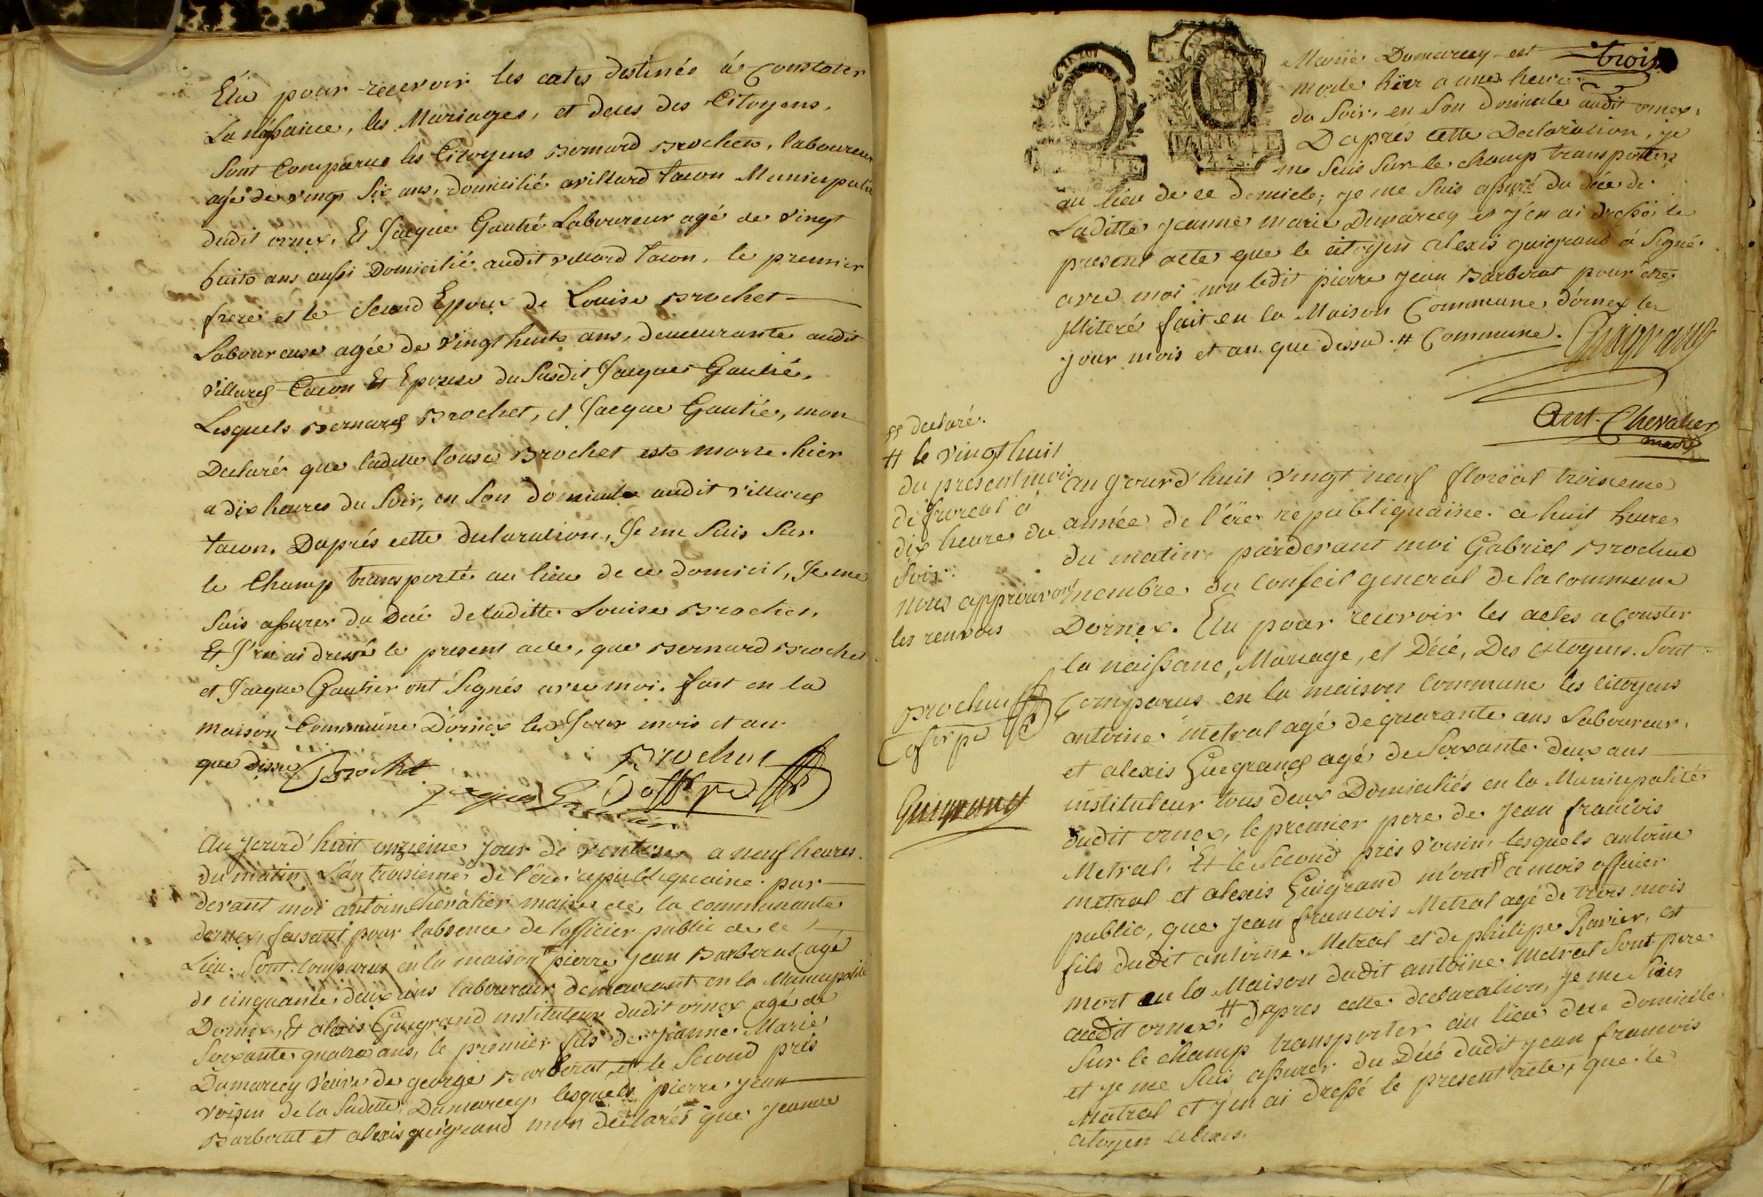 Elu pour recevoir les actes destinés á Constater
La naissance, les Mariages, et deces des Citoyens.
Sont Comparus les Citoyens Bernard Brochet, laboureur
agé de vingt Six ans, domicilié a villard tacon Municipalité
dudit ornex. Et Jacque Gautié Laboureur agé de vingt
huits ans aussi Domicilié audit villard tacon, le premier
frere et le Second Epoux de Louise Brochet
Laboureuse agée de vingt huits ans, demeurante audit
villard Tacon Et Epouse du Susdit Jacques Gautié.
Lesquels Bernard Brochet, et Jacque Gautié, mon
Declaré que laditte louise Brochet este morte hier
a dix heures du Soir, en Son domicile audit villard
tacon. Daprés cette declaration, Je me Suis Sur
le Champ transporté au lieu de ce domicil, Je me
Suis assurer du Decé de laditte Louise Brochet,
Et J'en ai dressé le present acte, que Bernard Brochet
et Jacque Gautier ont Signés avec moi. fait en la
maison Commune D'ornex les Jour mois et an
que dessu Brochet Brochut
jaques Gautier offr pc
Au jourd'huit onzieme jour de ventose a neuf heures
du matin L'an troisieme de l'ére republiquaine. par
devant moi antoine chevalier maire de la communauté
dornex, faisant pour l'absence de l'officier public de ce
Lieu. Sont comparus en la maison pierre jean Barberat agé
de cinquante deux ans laboureur demeurant en la Municipalité
Dornex, Et alexis Guigrand instituteur dudit ornex agé de
Soixante quatre ans, le premier fils de Jeanne Marie
Dumarcey veuve de george Barberat, et le Second prés
voisin de la Sudette Dumarcey, lesquels pierre jean
Barberat et alexis guigrand mon declarés que jeanne
trois
Marie Dumarcey est
morte hier a une heure
du Soir. en Son domicile audit ornex.
Dapres cette Declaration, je
me Suis Sur le champ transporter
au lieu de ce domicile, je me Suis assuré du décé de
Laditte jeanne marie Dumarcey et j'en ai dressé le
present acte que le citoyen alexis guigrand á Signé
avec moi non ledit pierre jean Barberat pour etre
illiteré fait en la Maison Commune d'ornex le
jour mois et an que dessu. # Commune. Guigrand
Ant. Chevalier
maire
ss declaré.
# le vingt huit
du present mois
de floreal à
dix heure du
Soir.
nous approuvont
les renvois
Brochut
offr pc
Guigrand
au jourd'huit vingt neuf floréal troisieme
année de l'ére républiquaine. a huit heures
du matin pardevant moi Gabriel Brochut
membre du Conseil general de la commune
Dornex. Elu pour recevoir les actes a Conster
la naissance, Mariage, et Décé, Des Citoyens. Sont
Comparus en la maison Commune les Citoyens
antoine metral agé de quarante ans Laboureur.
et alexis Guigrand agé de Soixante deux ans
instituteur tous deux Domiciliés en la Municipalité
dudit ornex, le premier pere de Jean francois
Metral. Et le Second prés voisin, lesquels antoine
metral et alexis Guigrand m'ont ss á mois officier
public, que jean francois Metral agé de trois mois
fils dudit antoine Metral et de philipe Ravier, est
mort en la Maison dudit antoine metral Sont pere
audit ornex. # dapres cette declaration, je me Suis
Sur le champ transporter au lieu de ce domicile
et je me Suis assurer du Décé dudit jean francois
Metral et j'en ai dressé le present acte, que le
citoyen alexis.